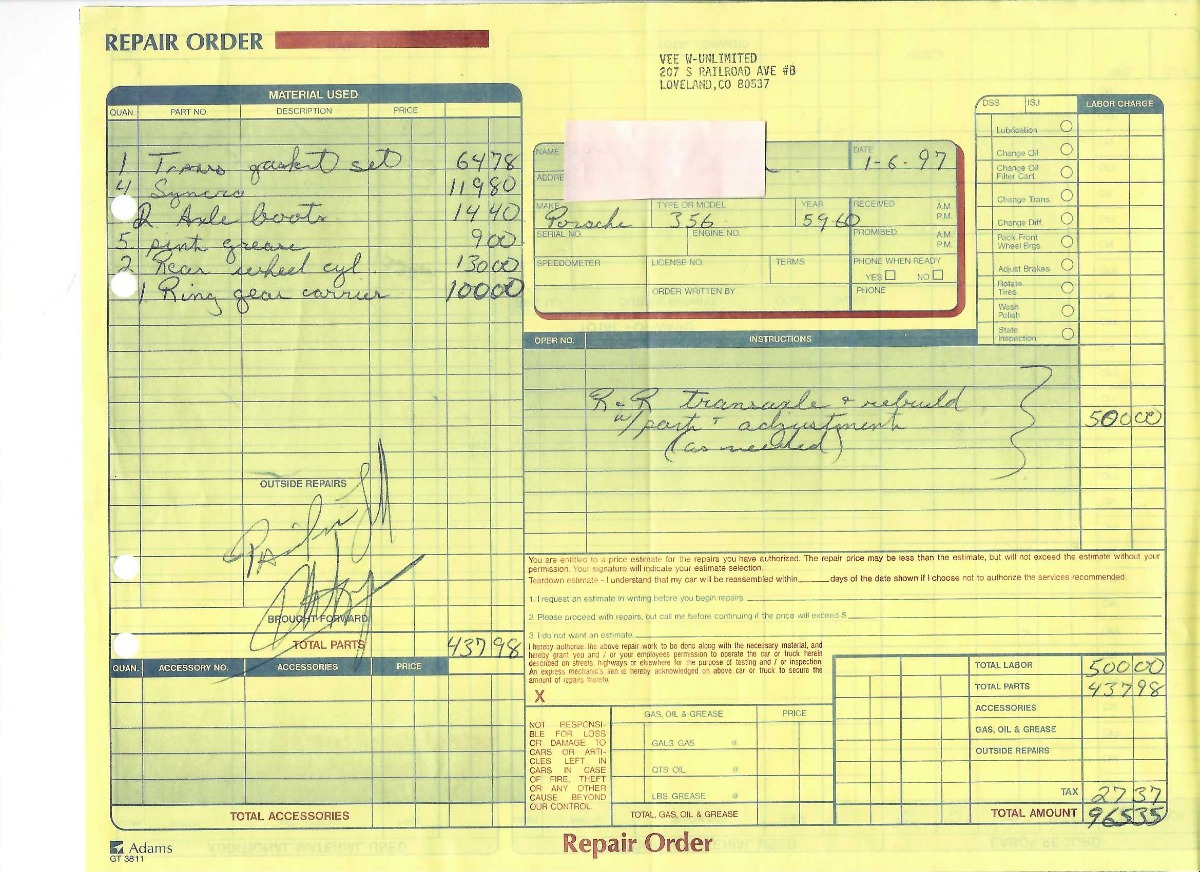 REPAIR ORDER
VEE W-UNLIMITED
207 S RAILROAD AVE #B
LOVELAND,CO 80537
MATERIAL USED
QUAN. PART NO. DESCRIPTION PRICE
1 Trans gasket set 6478
4 Syncro 11980
2 Axle boots 1440
5 pint grease 900
2 Rear wheel cyl. 13000
1 Ring gear carrier 10000
OUTSIDE REPAIRS
BROUGHT FORWARD
TOTAL PARTS 43798
QUAN. ACCESSORY NO. ACCESSORIES PRICE
TOTAL ACCESSORIES
NAME DATE 1-6-97
ADDRE
MAKE Porsche TYPE OR MODEL 356 YEAR 5960 RECEIVED A.M. P.M.
SERIAL NO. ENGINE NO. PROMISED A.M. P.M.
SPEEDOMETER LICENSE NO. TERMS PHONE WHEN READY
YES NO
ORDER WRITTEN BY PHONE
DSS ISJ LABOR CHARGE
Lubrication
Change Oil
Change Oil Filter Cart.
Change Trans.
Change Diff.
Pack Front Wheel Brgs.
Adjust Brakes
Rotate Tires
Wash Polish
State Inspection
OPER NO. INSTRUCTIONS
R & R transaxle & rebuild
w/ part & adjustment 50000
(as needed)
You are entitled to a price estimate for the repairs you have authorized. The repair price may be less than the estimate, but will not exceed the estimate without your
permission. Your signature will indicate your estimate selection.
Teardown estimate - I understand that my car will be reassembled within______days of the date shown if I choose not to authorize the services recommended.
1. I request an estimate in writing before you begin repairs
2. Please proceed with repairs, but call me before continuing if the price will exceed $
3. I do not want an estimate
I hereby authorize the above repair work to be done along with the necessary material, and
hereby grant you and / or your employees permission to operate the car or truck herein
described on streets, highways or elsewhere for the purpose of testing and / or inspection.
An express mechanic's lien is hereby acknowledged on above car or truck to secure the
amount of repairs thereto.
X
NOT RESPONSI-
BLE FOR LOSS
OR DAMAGE TO
CARS OR ARTI-
CLES LEFT IN
CARS IN CASE
OF FIRE, THEFT
OR ANY OTHER
CAUSE BEYOND
OUR CONTROL.
GAS, OIL & GREASE PRICE
GALS GAS @
QTS OIL @
LBS GREASE @
TOTAL, GAS, OIL & GREASE
TOTAL LABOR 50000
TOTAL PARTS 43798
ACCESSORIES
GAS, OIL & GREASE
OUTSIDE REPAIRS
TAX 2737
TOTAL AMOUNT 96535
Adams
GT 3811
Repair Order